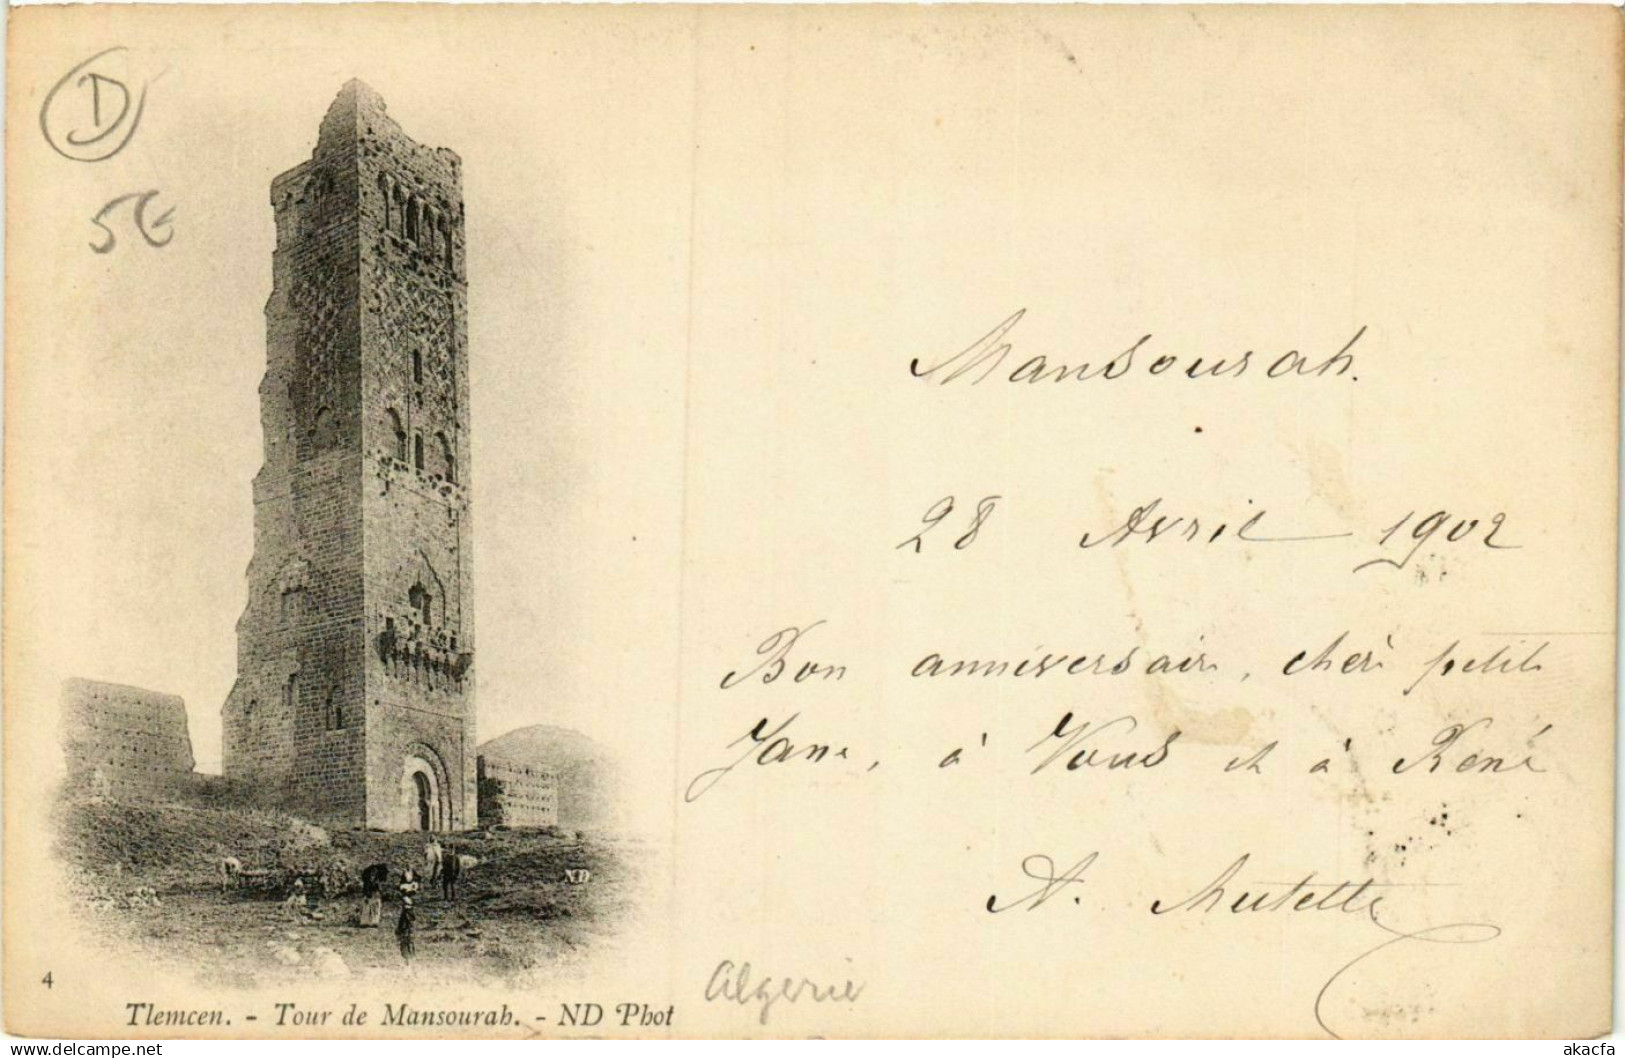 D
5€
Mansourah.
28 Avril 1902
Bon anniversaire, chère petite
Jane, à Vous et à René
A.
ND
4
Tlemcen. - Tour de Mansourah. - ND Phot
Algerie
akacfa
delcampe.net